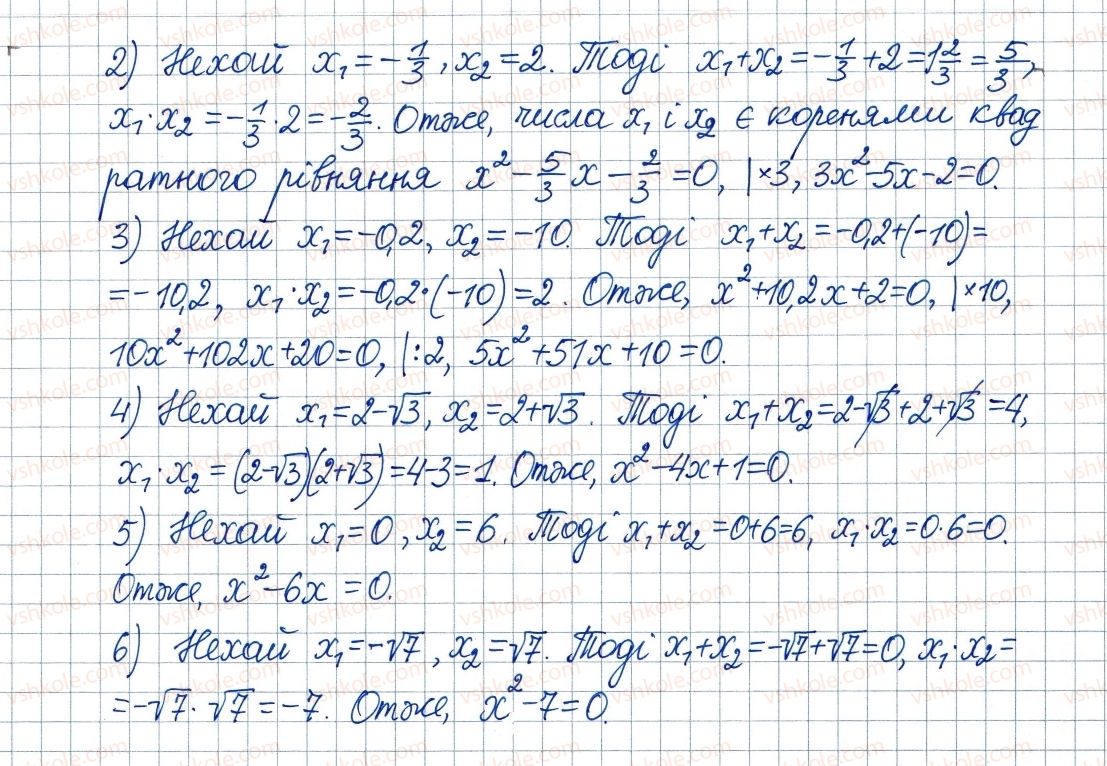 2) Нехай x₁ = -1/3, x₂ = 2. Тоді x₁+x₂ = -1/3 + 2 = 1 2/3 = 5/3,
x₁·x₂ = -1/3·2 = -2/3. Отже, числа x₁ і x₂ є коренями квад
ратного рівняння x² - 5/3x - 2/3 = 0, |×3, 3x²-5x-2=0.
3) Нехай x₁ = -0,2, x₂ = -10. Тоді x₁+x₂ = -0,2+(-10)=
= -10,2, x₁·x₂ = -0,2·(-10) = 2. Отже, x²+10,2x+2=0, |×10,
10x²+102x+20=0, |:2, 5x²+51x+10=0.
4) Нехай x₁=2-√3, x₂=2+√3. Тоді x₁+x₂=2-√3+2+√3=4,
x₁·x₂ = (2-√3)(2+√3)=4-3=1. Отже, x²-4x+1=0.
5) Нехай x₁=0, x₂=6. Тоді x₁+x₂=0+6=6, x₁·x₂=0·6=0.
Отже, x²-6x=0.
6) Нехай x₁=-√7, x₂=√7. Тоді x₁+x₂=-√7+√7=0, x₁·x₂=
=-√7·√7=-7. Отже, x²-7=0.
vshkole.com